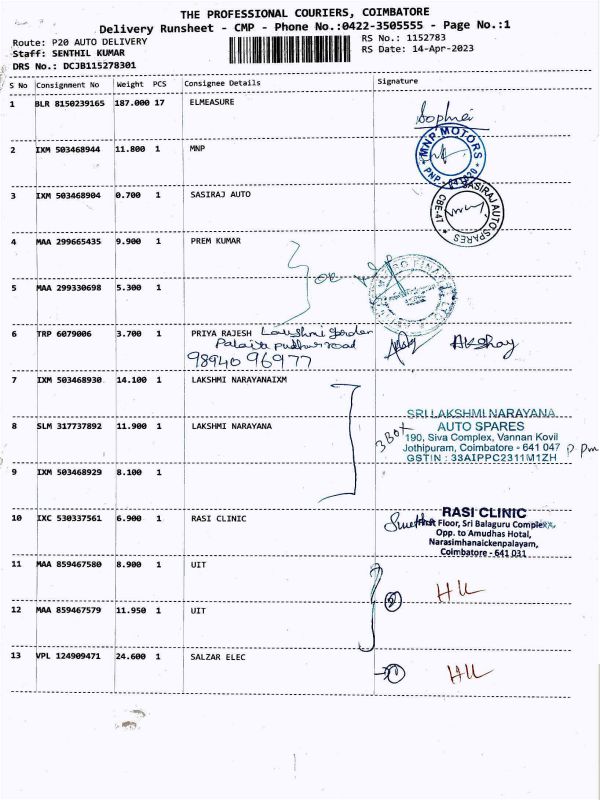 THE PROFESSIONAL COURIERS, COIMBATORE
Delivery Runsheet - CMP - Phone No.:0422-3505555 - Page No.:1
Route: P20 AUTO DELIVERY
RS No.: 1152783
Staff: SENTHIL KUMAR
RS Date: 14-Apr-2023
DRS No.: DCJB115278301
S No Consignment No Weight PCS Consignee Details Signature
1 BLR 8150239165 187.000 17 ELMEASURE
Sophiei
2 IXM 503468944 11.800 1 MNP
MNP MOTORS
3 IXM 503468904 0.700 1 SASIRAJ AUTO
SASIRAJ AUTO SPARES
CBE-47
4 MAA 299665435 9.900 1 PREM KUMAR
5 MAA 299330698 5.300 1
6 TRP 6079006 3.700 1 PRIYA RAJESH
road
98940 96977
Akshay
7 IXM 503468930 14.100 1 LAKSHMI NARAYANAIXM
8 SLM 317737892 11.900 1 LAKSHMI NARAYANA
3 Box
SRI LAKSHMI NARAYANA
AUTO SPARES
190, Siva Complex, Vannan Kovil
Jothipuram, Coimbatore - 641 047
GSTIN : 33AIPPC2311M1ZH
9 IXM 503468929 8.100 1
10 IXC 530337561 6.900 1 RASI CLINIC
RASI CLINIC
Floor, Sri Balaguru Complex,
Opp. to Amudhas Hotal,
Narasimhanaickenpalayam,
Coimbatore - 641 031
11 MAA 859467580 8.900 1 UIT
2
12 MAA 859467579 11.950 1 UIT
13 VPL 124909471 24.600 1 SALZAR ELEC
1